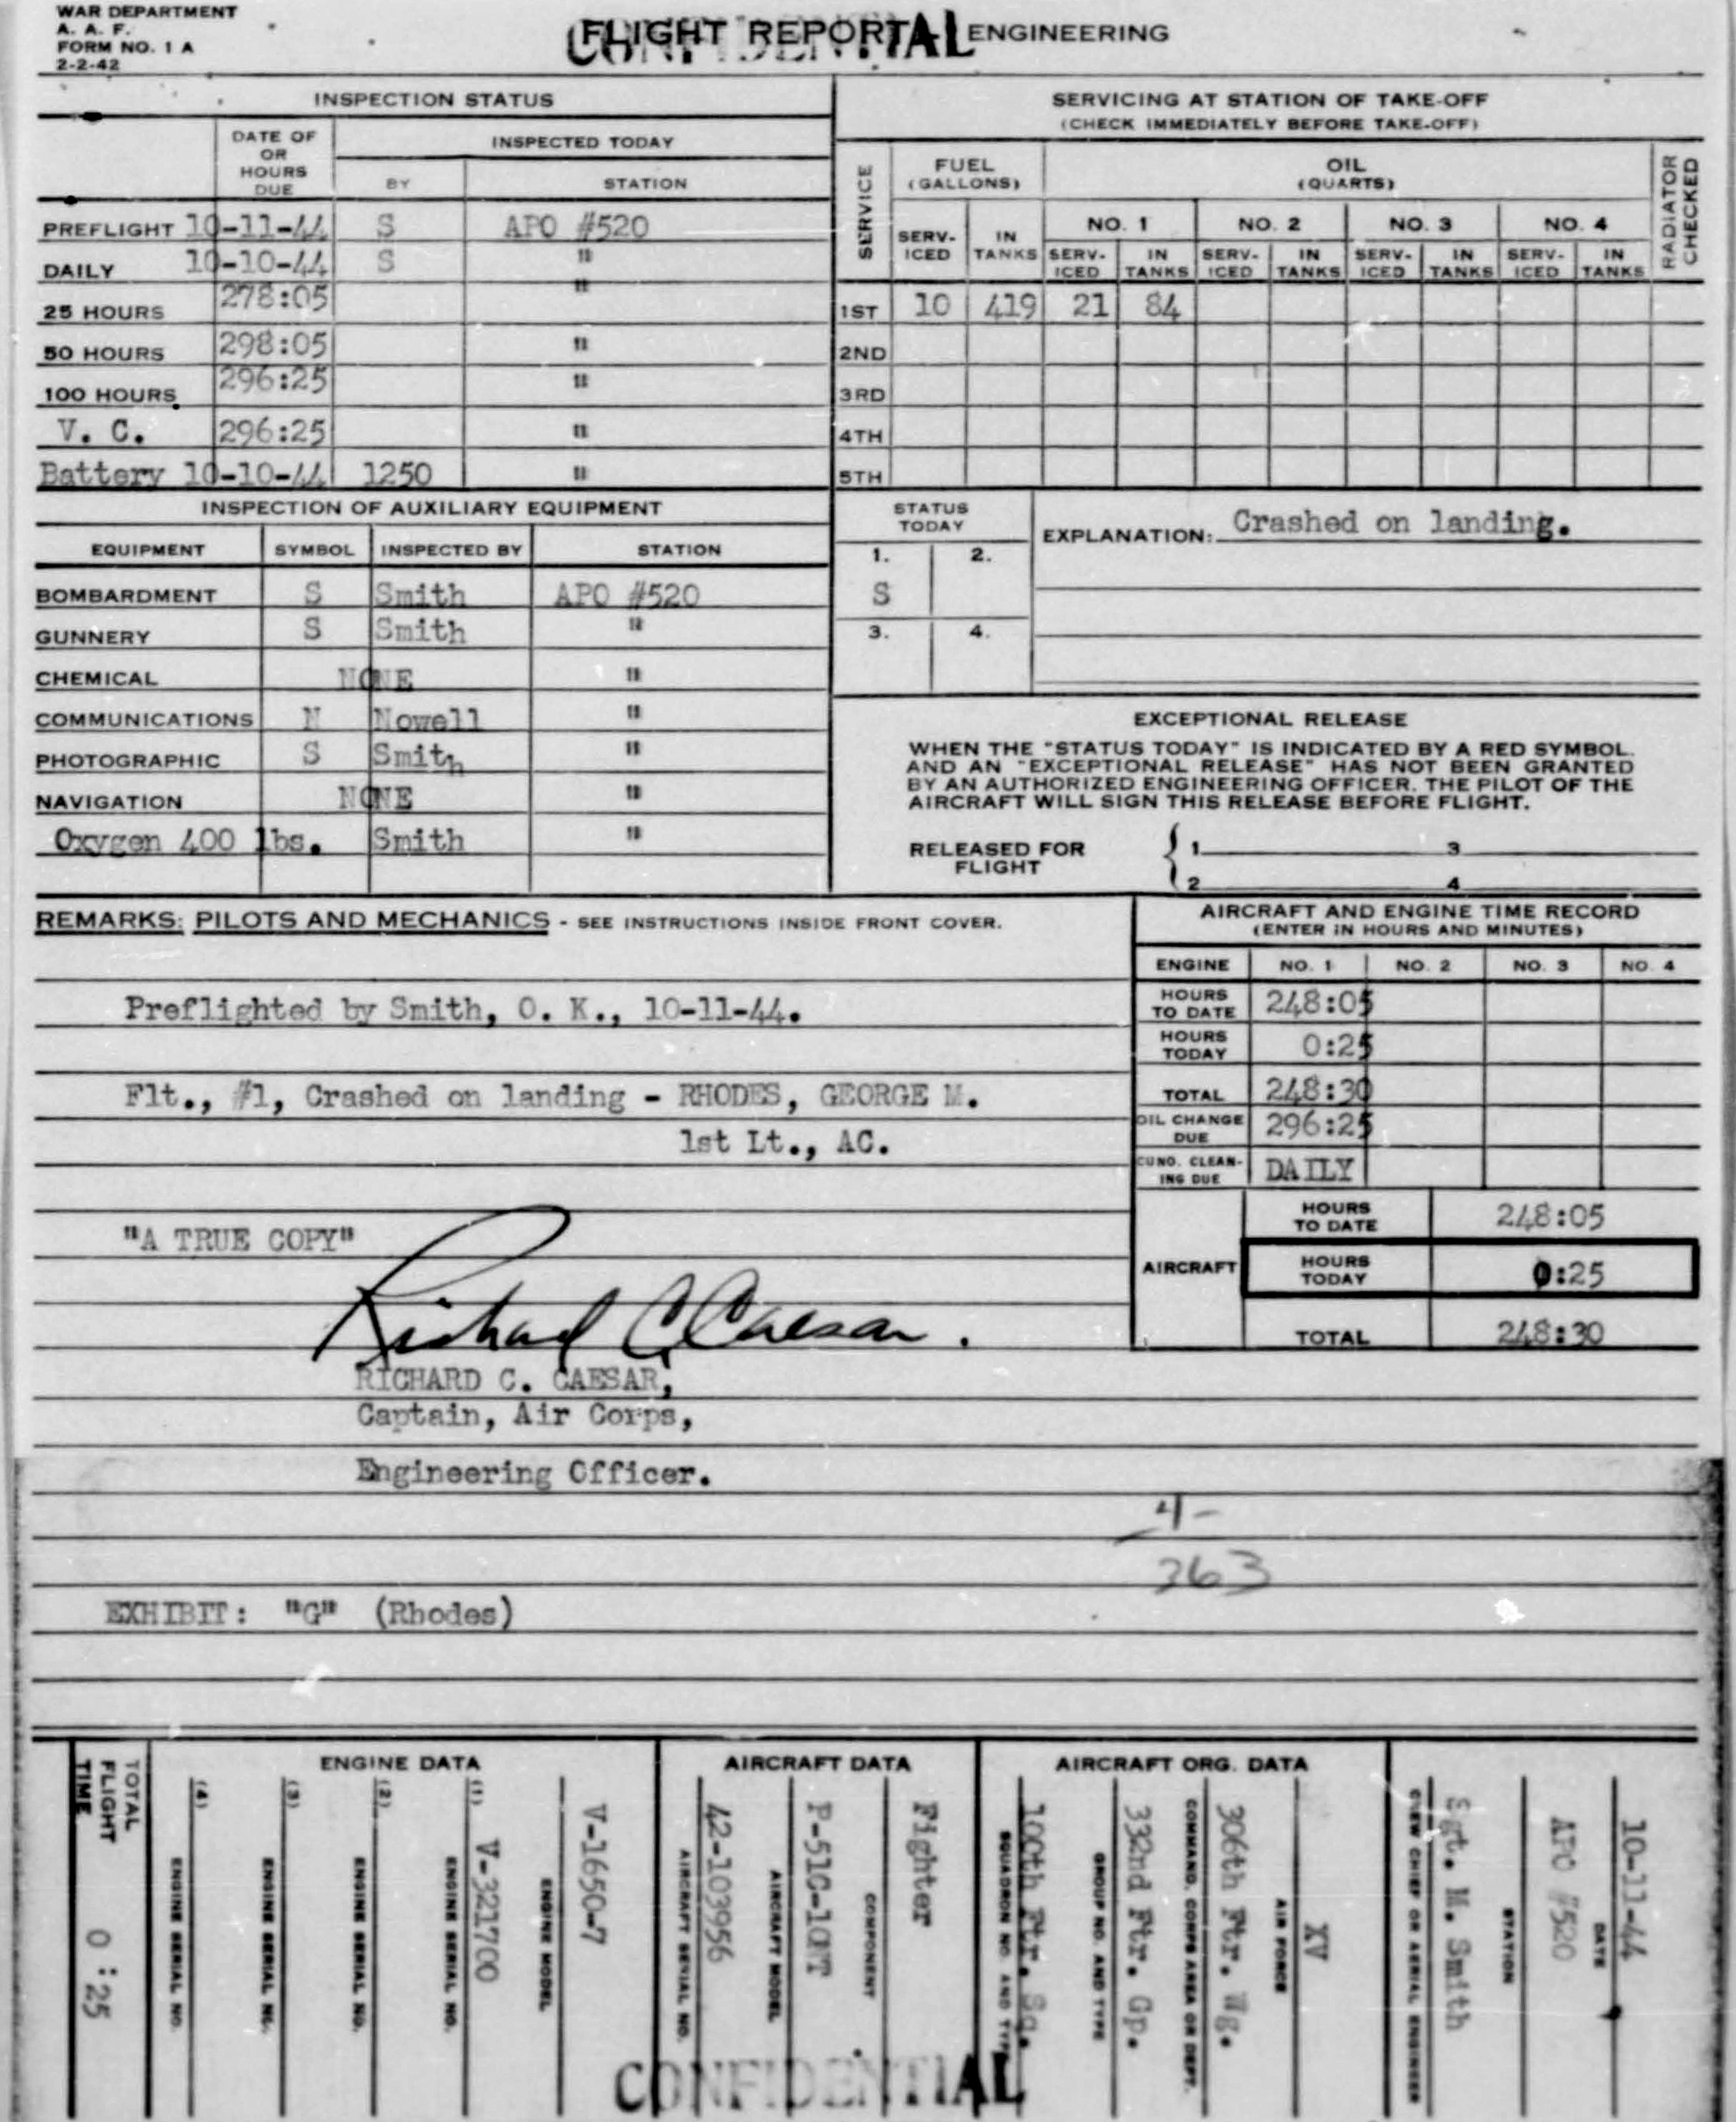 WAR DEPARTMENT
A. A. F.
FORM NO. 1 A
2-2-42
FLIGHT REPORT - ENGINEERING
CONFIDENTIAL
INSPECTION STATUS
DATE OF OR HOURS DUE
INSPECTED TODAY
BY STATION
PREFLIGHT 10-11-44 S APO #520
DAILY 10-10-44 S "
25 HOURS 278:05 "
50 HOURS 298:05 "
100 HOURS 296:25 "
V. C. 296:25 "
Battery 10-10-44 1250 "
SERVICING AT STATION OF TAKE-OFF
(CHECK IMMEDIATELY BEFORE TAKE-OFF)
SERVICE
FUEL (GALLONS)
OIL (QUARTS)
RADIATOR CHECKED
NO. 1 NO. 2 NO. 3 NO. 4
SERV-ICED IN TANKS SERV-ICED IN TANKS SERV-ICED IN TANKS SERV-ICED IN TANKS SERV-ICED IN TANKS
1ST 10 419 21 84
2ND
3RD
4TH
5TH
INSPECTION OF AUXILIARY EQUIPMENT
EQUIPMENT SYMBOL INSPECTED BY STATION
BOMBARDMENT S Smith APO #520
GUNNERY S Smith "
CHEMICAL NONE "
COMMUNICATIONS N Nowell "
PHOTOGRAPHIC S Smith "
NAVIGATION NONE "
Oxygen 400 lbs. Smith "
STATUS TODAY
1. S 2.
3. 4.
EXPLANATION: Crashed on landing.
EXCEPTIONAL RELEASE
WHEN THE "STATUS TODAY" IS INDICATED BY A RED SYMBOL.
AND AN "EXCEPTIONAL RELEASE" HAS NOT BEEN GRANTED
BY AN AUTHORIZED ENGINEERING OFFICER. THE PILOT OF THE
AIRCRAFT WILL SIGN THIS RELEASE BEFORE FLIGHT.
RELEASED FOR FLIGHT
1 3
2 4
REMARKS: PILOTS AND MECHANICS - SEE INSTRUCTIONS INSIDE FRONT COVER.
Preflighted by Smith, O. K., 10-11-44.
Flt., #1, Crashed on landing - RHODES, GEORGE M.
1st Lt., AC.
"A TRUE COPY"
Richard C. Caesar.
RICHARD C. CAESAR,
Captain, Air Corps,
Engineering Officer.
AIRCRAFT AND ENGINE TIME RECORD
(ENTER IN HOURS AND MINUTES)
ENGINE NO. 1 NO. 2 NO. 3 NO. 4
HOURS TO DATE 248:05
HOURS TODAY 0:25
TOTAL 248:30
OIL CHANGE DUE 296:25
CUNO. CLEAN-ING DUE DAILY
AIRCRAFT
HOURS TO DATE 248:05
HOURS TODAY 0:25
TOTAL 248:30
4-
363
EXHIBIT: "G" (Rhodes)
TOTAL FLIGHT TIME 0:25
ENGINE DATA
(4) ENGINE SERIAL NO.
(3) ENGINE SERIAL NO.
(2) ENGINE SERIAL NO.
(1) V-321700 ENGINE SERIAL NO.
V-1650-7 ENGINE MODEL
AIRCRAFT DATA
42-103956 AIRCRAFT SERIAL NO.
P-51C-10NT AIRCRAFT MODEL
Fighter COMPONENT
AIRCRAFT ORG. DATA
100th Ftr. Sq. SQUADRON NO. AND TYPE
332nd Ftr. Gp. GROUP NO. AND TYPE
306th Ftr. Wg. COMMAND, CORPS AREA OR DEPT.
XV AIR FORCE
Sgt. M. Smith CREW CHIEF OR AERIAL ENGINEER
APO #520 STATION
10-11-44 DATE
CONFIDENTIAL